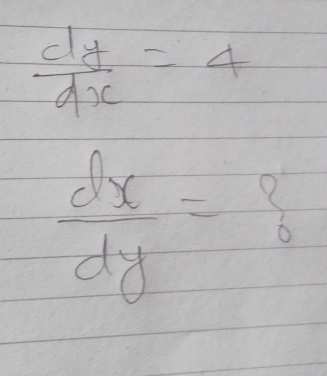 dy/dx = 4
dx/dy = ?